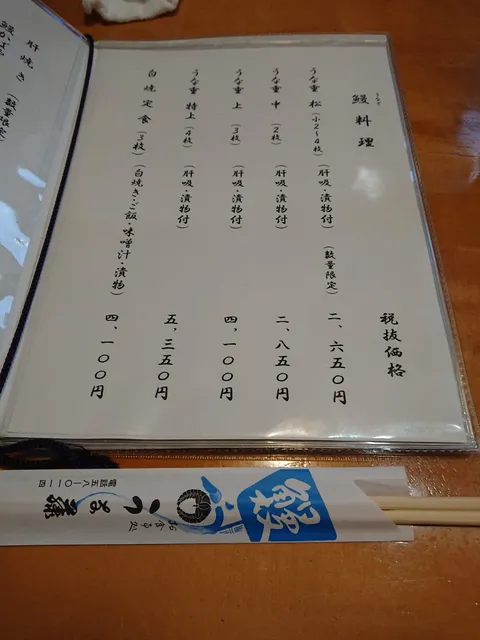 鰻料理
うなぎ
税抜価格
うな重 松(小2〜4枚)(肝吸・漬物付)(数量限定)二、六五〇円
うな重 中(2枚)(肝吸・漬物付)二、八五〇円
うな重 上(3枚)(肝吸・漬物付)四、一〇〇円
うな重 特上(4枚)(肝吸・漬物付)五、三五〇円
白焼定食(3枚)(白焼き・ご飯・味噌汁・漬物)四、一〇〇円
肝焼き(数量限定)
お食事処
電話五八-〇一一四